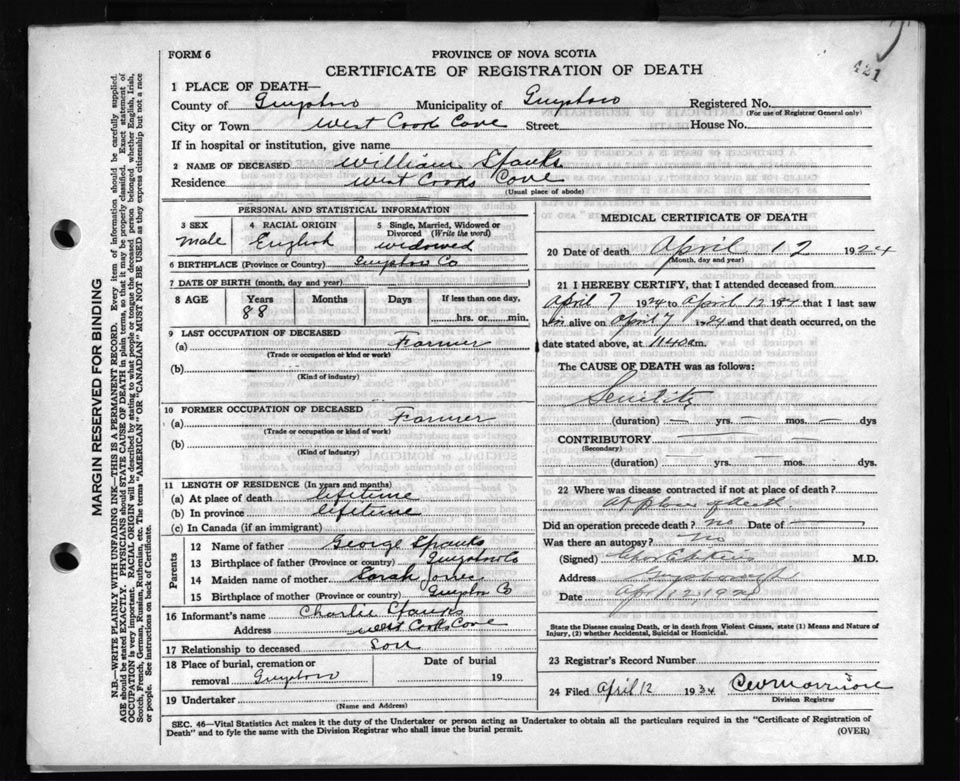 421
FORM 6
PROVINCE OF NOVA SCOTIA
CERTIFICATE OF REGISTRATION OF DEATH
1 PLACE OF DEATH—
County of Guysboro Municipality of Guysboro Registered No.
(For use of Registrar General only)
City or Town West Cooks Cove Street House No.
If in hospital or institution, give name
2 NAME OF DECEASED William Spanks
Residence West Cooks Cove
(Usual place of abode)
PERSONAL AND STATISTICAL INFORMATION
3 SEX 4 RACIAL ORIGIN 5 Single, Married, Widowed or Divorced (Write the word)
male English widowed
6 BIRTHPLACE (Province or Country) Guysboro Co
7 DATE OF BIRTH (month, day and year)
8 AGE Years Months Days If less than one day,
88 hrs. or min.
9 LAST OCCUPATION OF DECEASED
(a) Farmer
(Trade or occupation or kind or work)
(b)
(Kind of industry)
10 FORMER OCCUPATION OF DECEASED
(a) Farmer
(Trade or occupation or kind or work)
(b)
(Kind of industry)
11 LENGTH OF RESIDENCE (In years and months)
(a) At place of death lifetime
(b) In province lifetime
(c) In Canada (if an immigrant)
Parents
12 Name of father George Spanks
13 Birthplace of father (Province or country) Guysboro Co
14 Maiden name of mother Sarah Jones
15 Birthplace of mother (Province or country) Guysboro Co
16 Informant's name Charlie Spanks
Address West Cooks Cove
17 Relationship to deceased Son
18 Place of burial, cremation or removal Guysboro Date of burial 19
19 Undertaker
(Name and Address)
MEDICAL CERTIFICATE OF DEATH
20 Date of death April 12 1924
(Month, day and year)
21 I HEREBY CERTIFY, that I attended deceased from
April 7 1924 to April 12 1924 that I last saw
him alive on April 7 1924 and that death occurred, on the
date stated above, at 11.40 a m.
The CAUSE OF DEATH was as follows:
Senility
(duration) yrs. mos. dys
CONTRIBUTORY
(Secondary)
(duration) yrs. mos. dys.
22 Where was disease contracted if not at place of death?
At place of death
Did an operation precede death? No Date of
Was there an autopsy? No
(Signed) M.D.
Address Guysborough
Date April 12, 192
State the Disease causing Death, or in death from Violent Causes, state (1) Means and Nature of
Injury, (2) whether Accidental, Suicidal or Homicidal.
23 Registrar's Record Number
24 Filed April 12 1934 CW Morrison
Division Registrar
SEC. 46—Vital Statistics Act makes it the duty of the Undertaker or person acting as Undertaker to obtain all the particulars required in the "Certificate of Registration of
Death" and to fyle the same with the Division Registrar who shall issue the burial permit. (OVER)
MARGIN RESERVED FOR BINDING
N.B.—WRITE PLAINLY WITH UNFADING INK—THIS IS A PERMANENT RECORD. Every item of information should be carefully supplied.
AGE should be stated EXACTLY. PHYSICIANS should STATE CAUSE OF DEATH in plain terms, so that it may be properly classified. Exact statement of
OCCUPATION is very important. RACIAL ORIGIN will be described by stating to what people or tongue the deceased person belonged whether English, Irish,
Scotch, French, German, Russian, Ruthenian, etc. The terms "AMERICAN" OR "CANADIAN" MUST NOT BE USED as they express citizenship but not a race
or people. See instructions on back of Certificate.